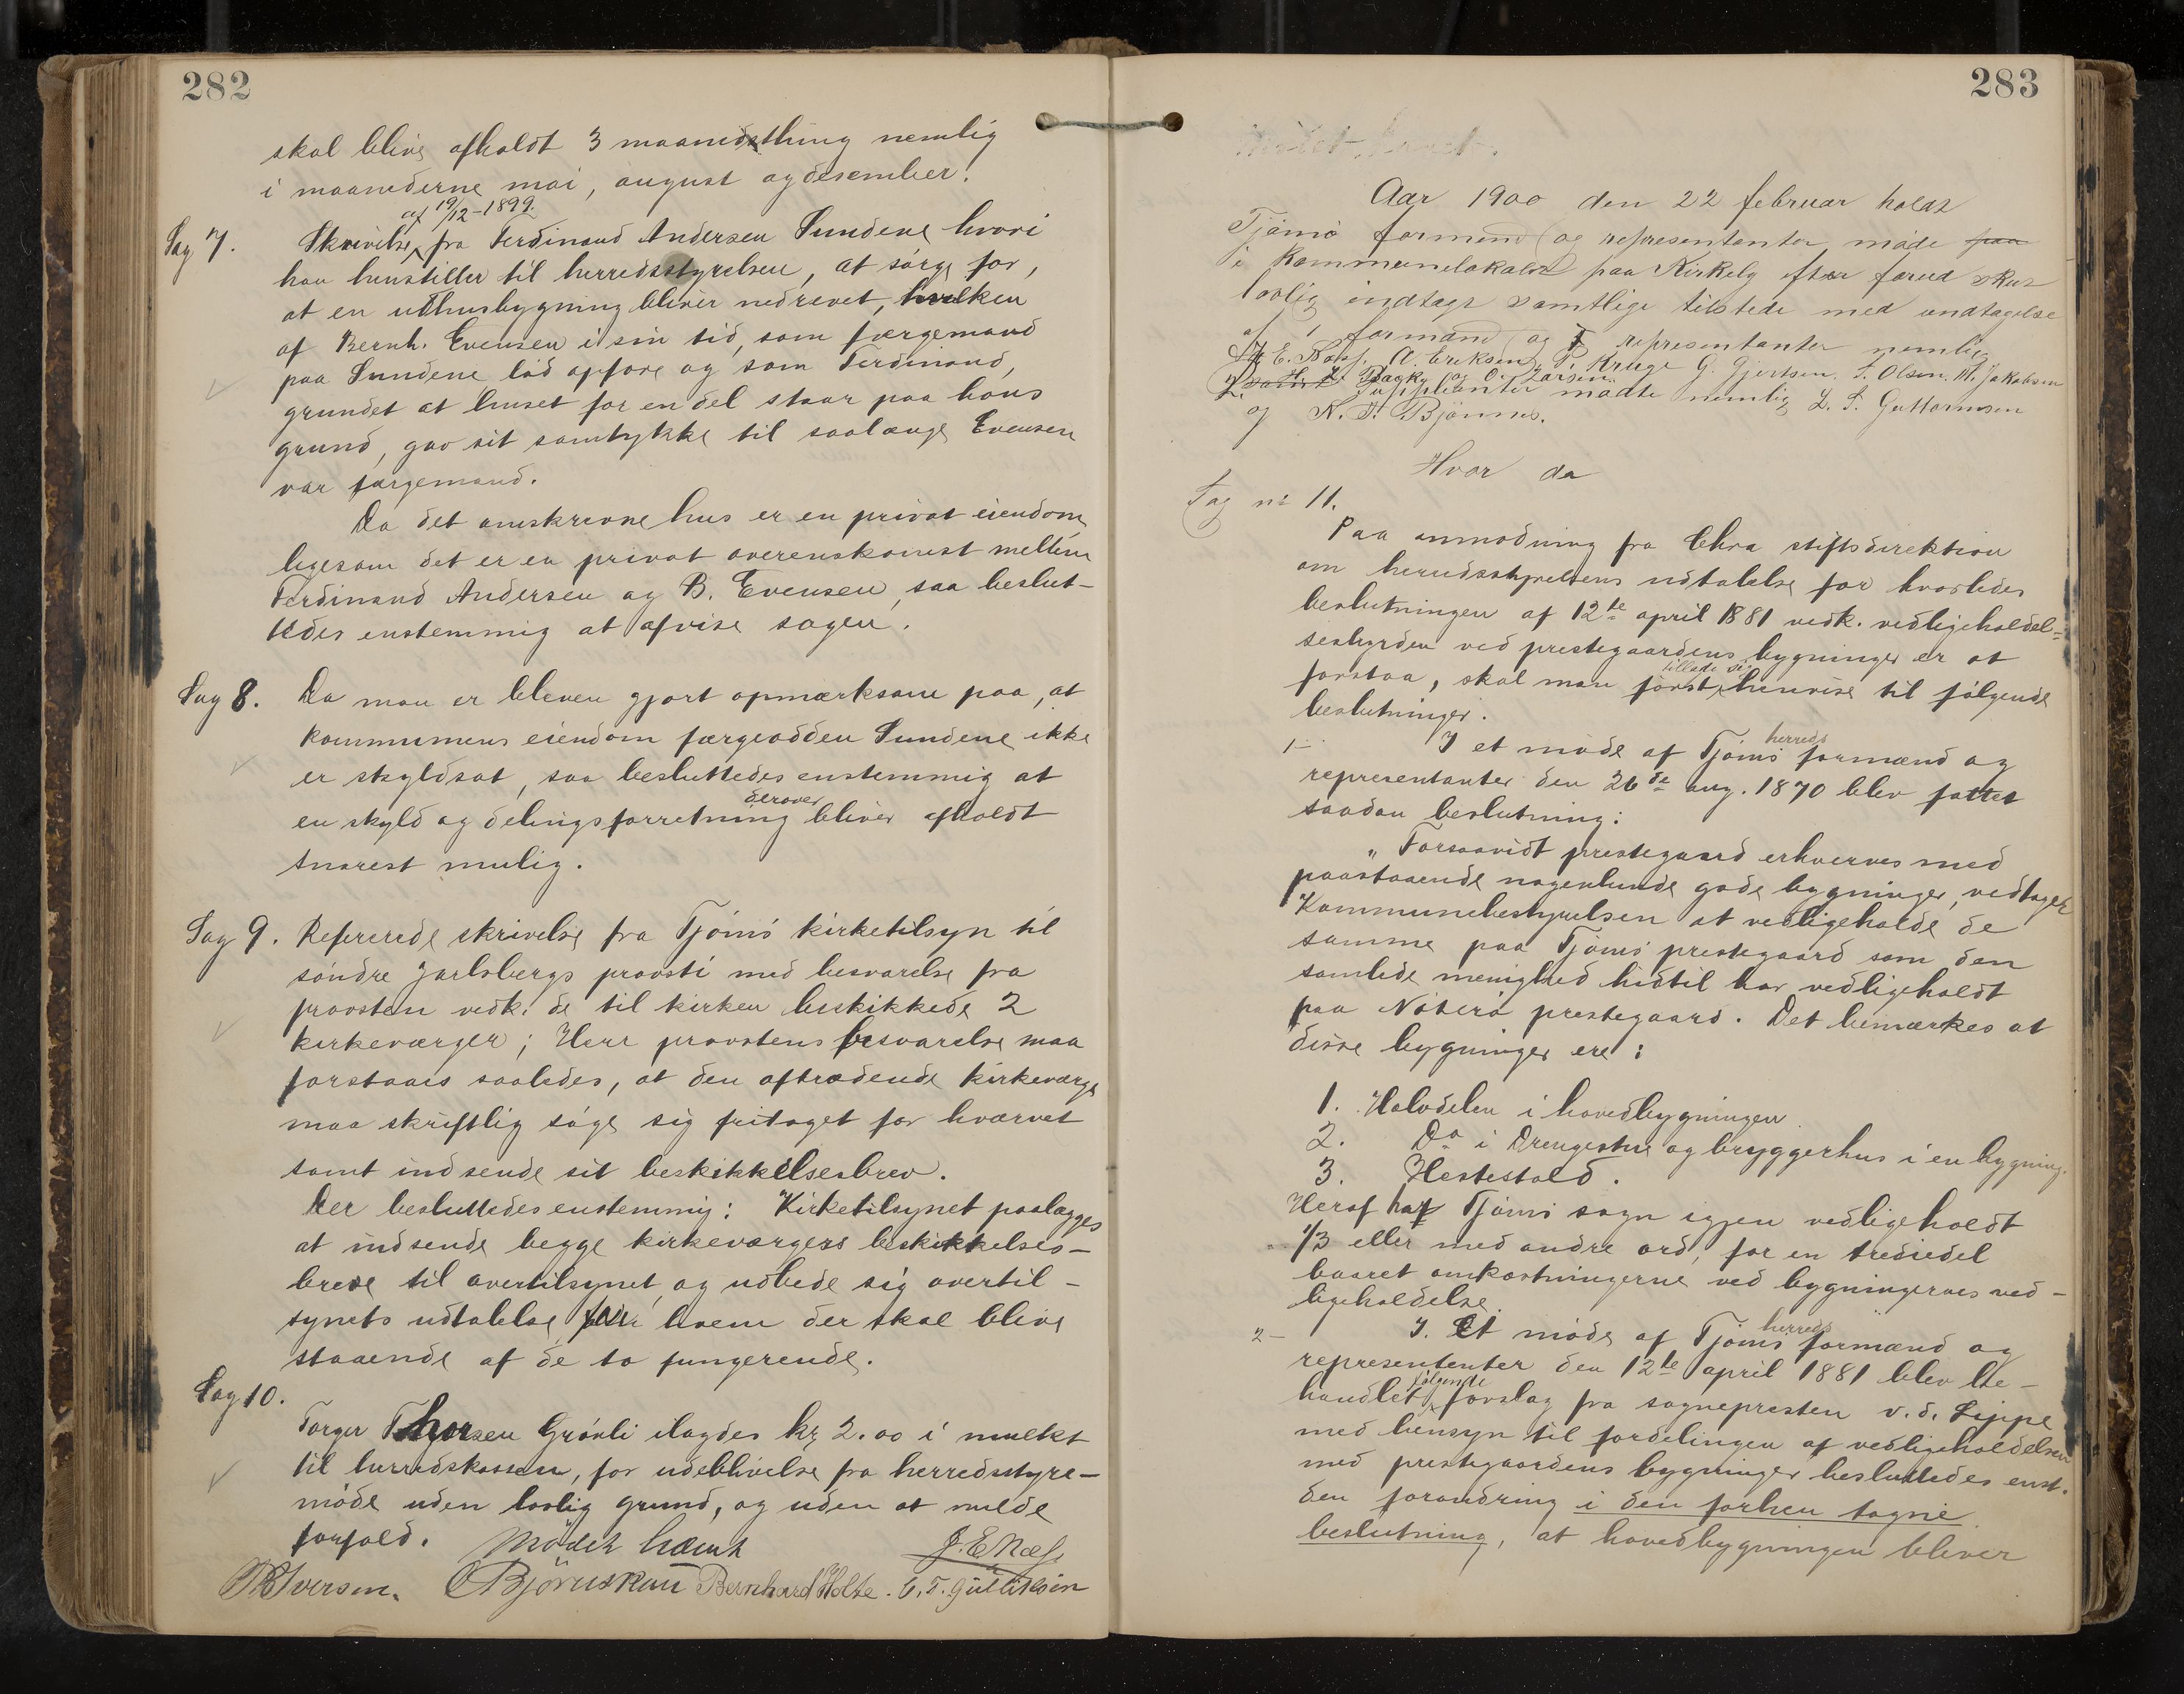 282
skal blive afholdt 3 maanedsthing nemlig
i maanederne mai, august og desember.
af 19/12-1899.
Sag 7. Skrivelse fra Ferdinand Andersen Sundene hvori
han henstiller til herredsstyrelsen, at sørge for,
at en uthusbygning bliver nedrevet, hvilken
af Bernh. Evensen i sin tid, som færgemand
paa Sundene lod opføre og som Ferdinand,
grundet at huset for en del staar paa hans
grund, gav sit samtykke til saalænge Evensen
var færgemand.
Da det omskrevne hus er en privat eiendom,
ligesom det er en privat overenskomst mellem
Ferdinand Andersen og B. Evensen, saa beslut-
tedes enstemmig at afvise sagen.
Sag 8. Da man er bleven gjort opmærksom paa, at
kommunens eiendom færgeodden Sundene ikke
er skyldsat, saa besluttedes enstemmig at
derover
en skyld og delingsforretning bliver afholdt
snarest mulig.
Sag 9. Refererede skrivelse fra Tjømø kirketilsyn til
søndre Jarlsbergs provsti med besvarelse fra
provsten vedk. de til kirken beskikkede 2
kirkeværger; Herr provstens besvarelse maa
forstaaes saaledes, at den aftrædende kirkeværge
maa skriftlig søge sig fritaget for hværvet
samt indsende sit beskikkelsesbrev.
Der besluttedes enstemmig: Kirketilsynet paalægges
at indsende begge kirkeværgers beskikkelses-
breve til overtilsynet og udbede sig overtil-
synets udtalelse hvem der skal blive
staaende af de to fungerende.
Sag 10.
Torger Thorsen Grøvli ilagdes kr 2.00 i mulkt
til herredskassen, for udeblivelse fra herredsstyre-
møde uden lovlig grund, og uden at melde
forfald. Mødet hævet J. E. Næss
Iversen. O Bjørnskau Bernhard Holte. C. T. Gullicksen
283
Mødet hævet.
Aar 1900 den 22 februar holdt
Tjømø formænd og representanter møde paa
i Kommunelokalet paa Kirkely efter forud skee
lovlig indtægt samtlige tilstede med undtagelse
af 1 formand og 7 representanter nemlig
J. E. Næss. A. Eriksen, P. Kruge G. Gjertsen. S. Olsen. M. Jakobsen
H. L. Bache og O. Larsen.
2 Suppleanter mødte nemlig L. S. Guttormsen
og N. J. Bjønnes.
Hvor da
Sag nr 11.
Paa anmodning fra Chra stiftsdirektion
om herredsstyrelsens udtalelse for hvorledes
beslutningen af 12te april 1881 vedk. vedligeholdel-
sesbyrden ved prestegaardens bygninger er at
tillade sig
forstaa, skal man først henvise til følgende
beslutninger.
herreds
1- I et møde af Tjømø formænd og
representanter den 26de aug. 1870 blev fattet
saadan beslutning:
"Forsaavidt prestegaard erhverves med
paastaaende nogenlunde gode bygninger, vedtager
Kommunebestyrelsen at vedligeholde de
samme paa Tjømø prestegaard som den
samlede menighed hidtil har vedligeholdt
paa Nøterø prestegaard. Det bemærkes at
disse bygninger ere:
1. Halvdelen i hovedbygningen
2. Do i Drengestue og bryggerhus i en bygning.
3. Hestestald.
Heraf har Tjømø sogn igjen vedligeholdt
1/3 eller med andre ord, for en trediedel
baaret omkostningerne ved bygningernes ved-
ligeholdelse.
herreds
2- I. Et møde af Tjømø formænd og
represententer den 12te april 1881 blev be-
følgende
handlet forslag fra sognepresten v. d. Lippe
med hensyn til fordelingen af vedligeholdelsen
med prestegaardens bygninger besluttedes enst.
den forandring i den forhen tagne
beslutning, at hovedbygningen bliver